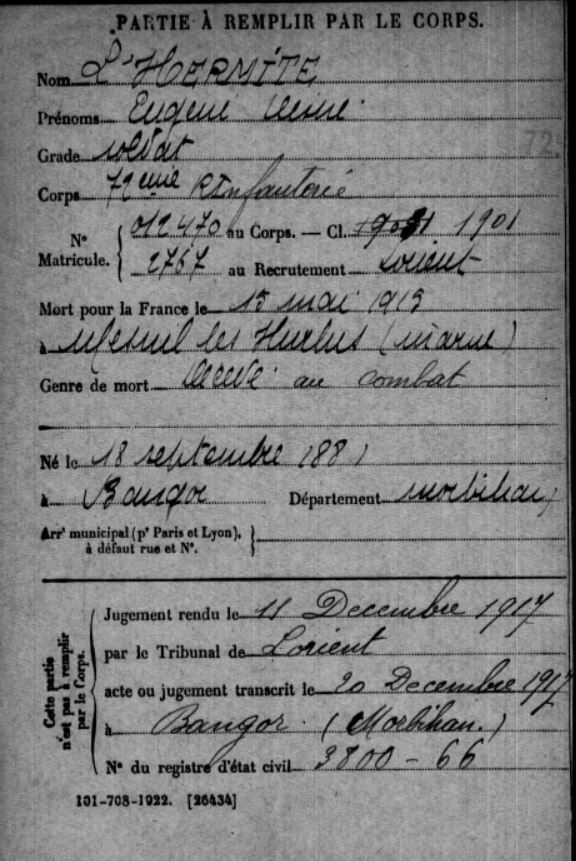 PARTIE À REMPLIR PAR LE CORPS.
Nom L'HERMITE
Prénoms Eugène
Grade soldat
72
Corps 72eme RInfanterie
N° Matricule. { 012470 au Corps. — Cl. 1901
2757 au Recrutement Lorient
Mort pour la France le 15 mai 1915
à Mesnil les Hurlus (marne)
Genre de mort décédé au combat
Né le 18 septembre 1881
à Bangor Département morbihan
Arrt municipal (pr Paris et Lyon), à défaut rue et N°. }
Cette partie n'est pas à remplir par le Corps.
Jugement rendu le 11 Decembre 1917
par le Tribunal de Lorient
acte ou jugement transcrit le 20 Decembre 1917
à Bangor. (Morbihan.)
N° du registre d'état civil 3800 - 66
101-708-1922. [26434]